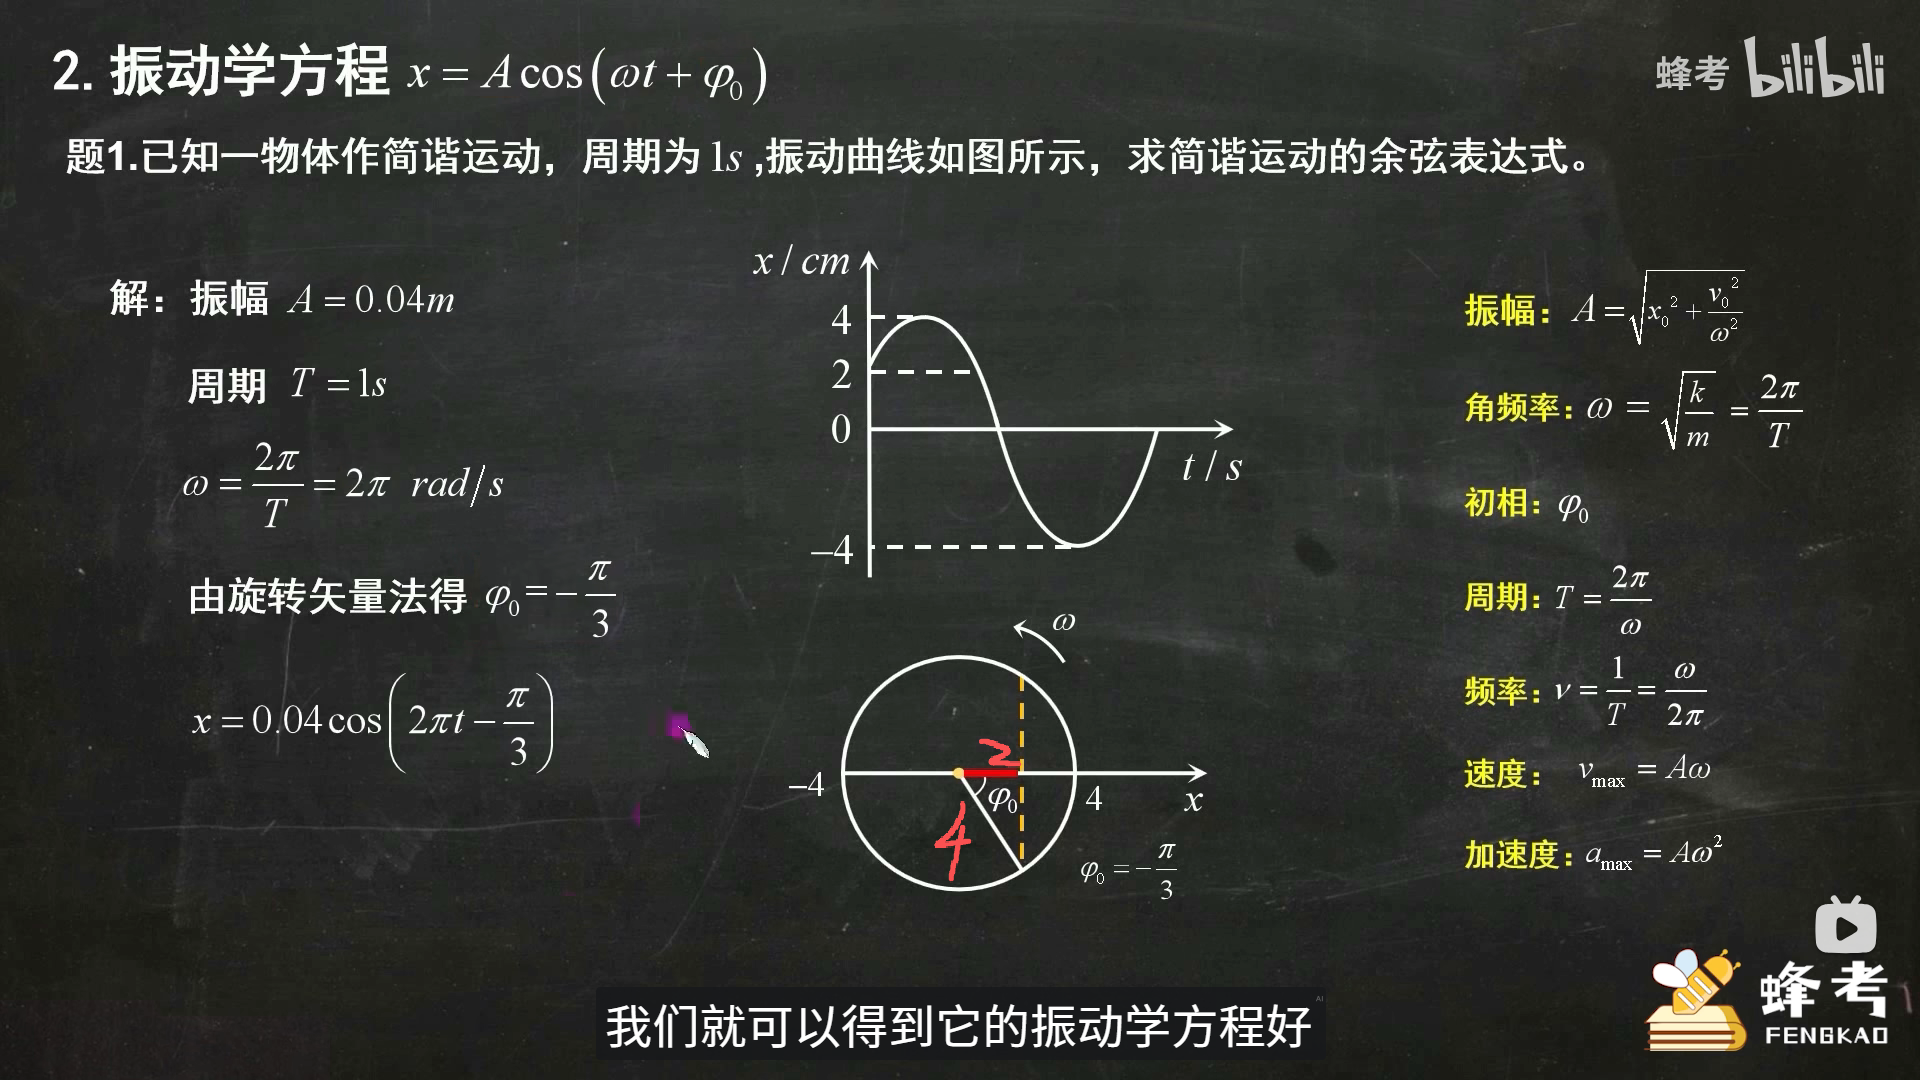 2. 振动学方程 x = A cos(ωt + φ₀)
蜂考 bilibili
题1.已知一物体作简谐运动，周期为 1s ,振动曲线如图所示，求简谐运动的余弦表达式。
解：振幅 A = 0.04m
周期 T = 1s
ω = 2π/T = 2π rad/s
由旋转矢量法得 φ₀ = −π/3
x = 0.04 cos(2πt − π/3)
x / cm
4
2
0
−4
t / s
ω
2
−4
φ₀
4
x
4
φ₀ = −π/3
振幅：A = √(x₀² + v₀²/ω²)
角频率：ω = √(k/m) = 2π/T
初相：φ₀
周期：T = 2π/ω
频率：ν = 1/T = ω/2π
速度： vmax = Aω
加速度：amax = Aω²
蜂考
FENGKAO
我们就可以得到它的振动学方程好
AI